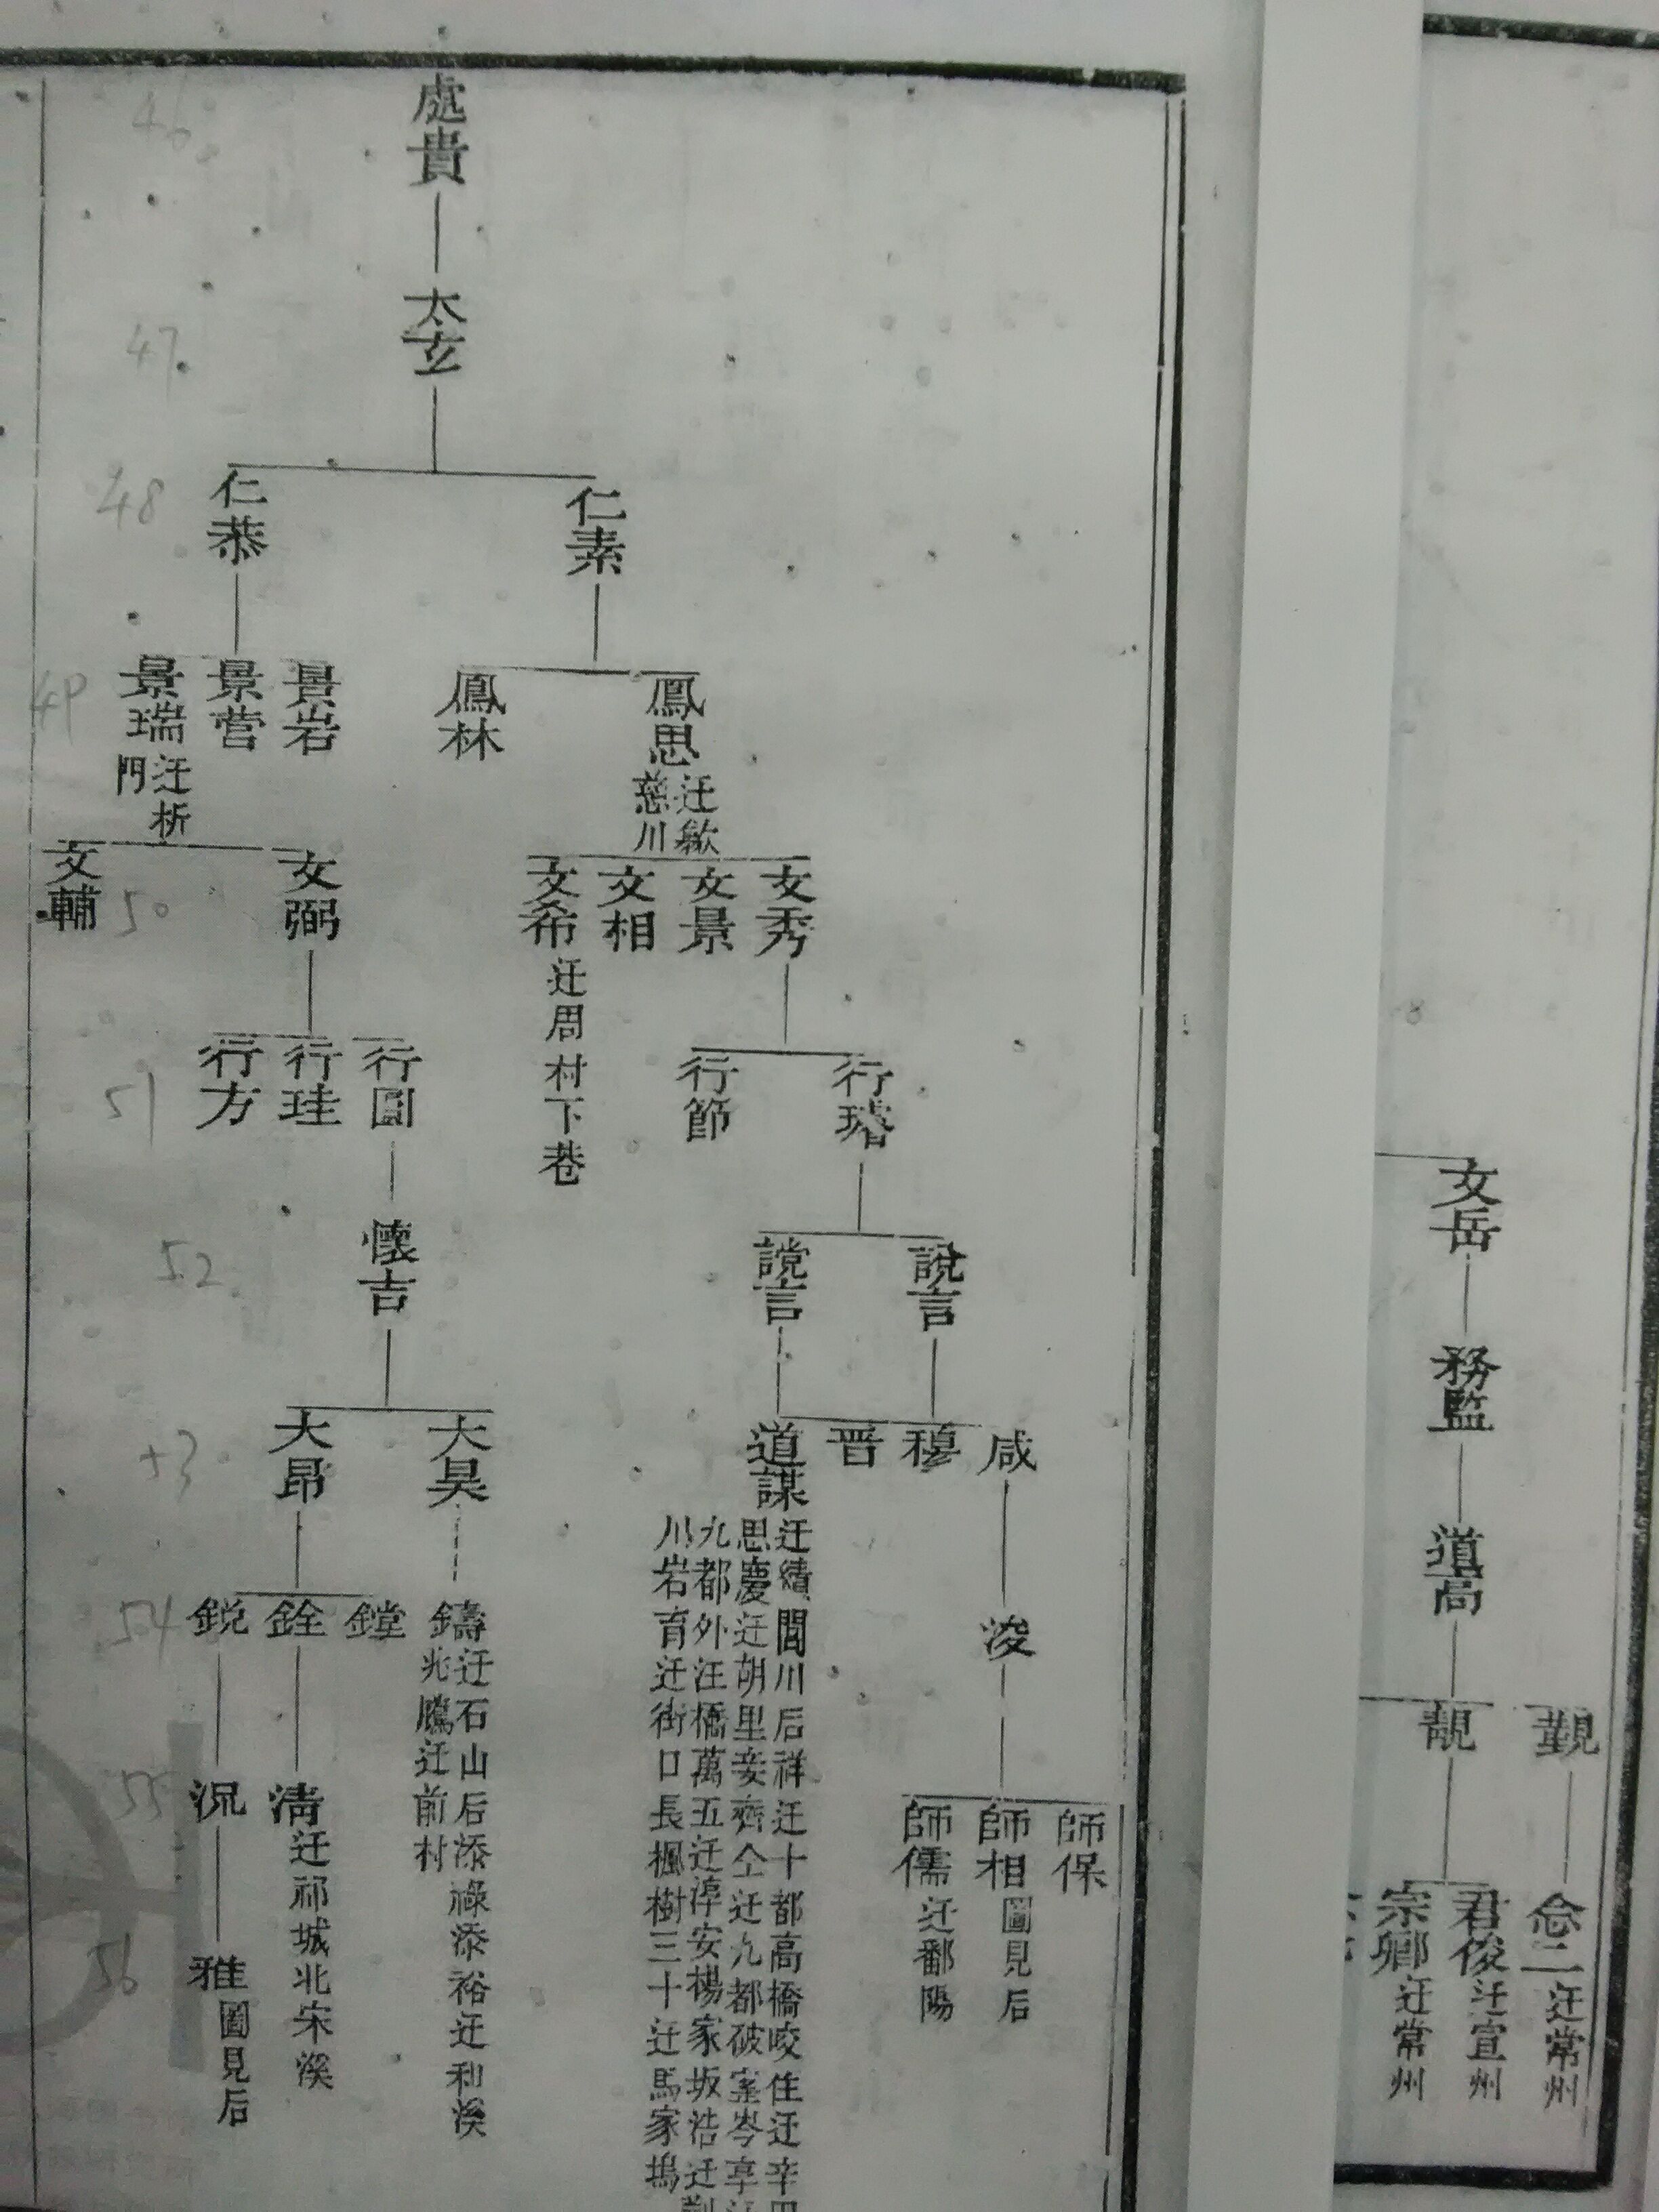 文岳
務監
道高
覲
靚
念二
迁常州
君俊
迁宣州
宗卿
迁常州
46
處貴
47
太玄
48
仁素
仁恭
49
鳳思
迁歙
慈川
鳳林
景岩
景營
景瑞
迁析
門
50
文秀
文景
文相
文希
迁周村下巷
文弼
文輔
51
行璿
行節
行圓
行珪
行方
52
讜言
懷吉
53
咸
穆
晋
道謀
迁績
川后祥迁十都高橋咬住迁辛田
思慶迁胡里妾齊仝迁九都破
九都外汪橋萬五迁淳安楊家坂浩迁
川岩育迁街口長楓樹三十迁馬家塢
大昊
大昂
54
浚
鑄
迁石山后添祿添裕迁和溪
兆騰迁前村
鏜
銓
鋭
55
師保
師相
圖見后
師儒
迁鄱陽
淸
迁祁城北宋溪
況
56
雅
圖見后